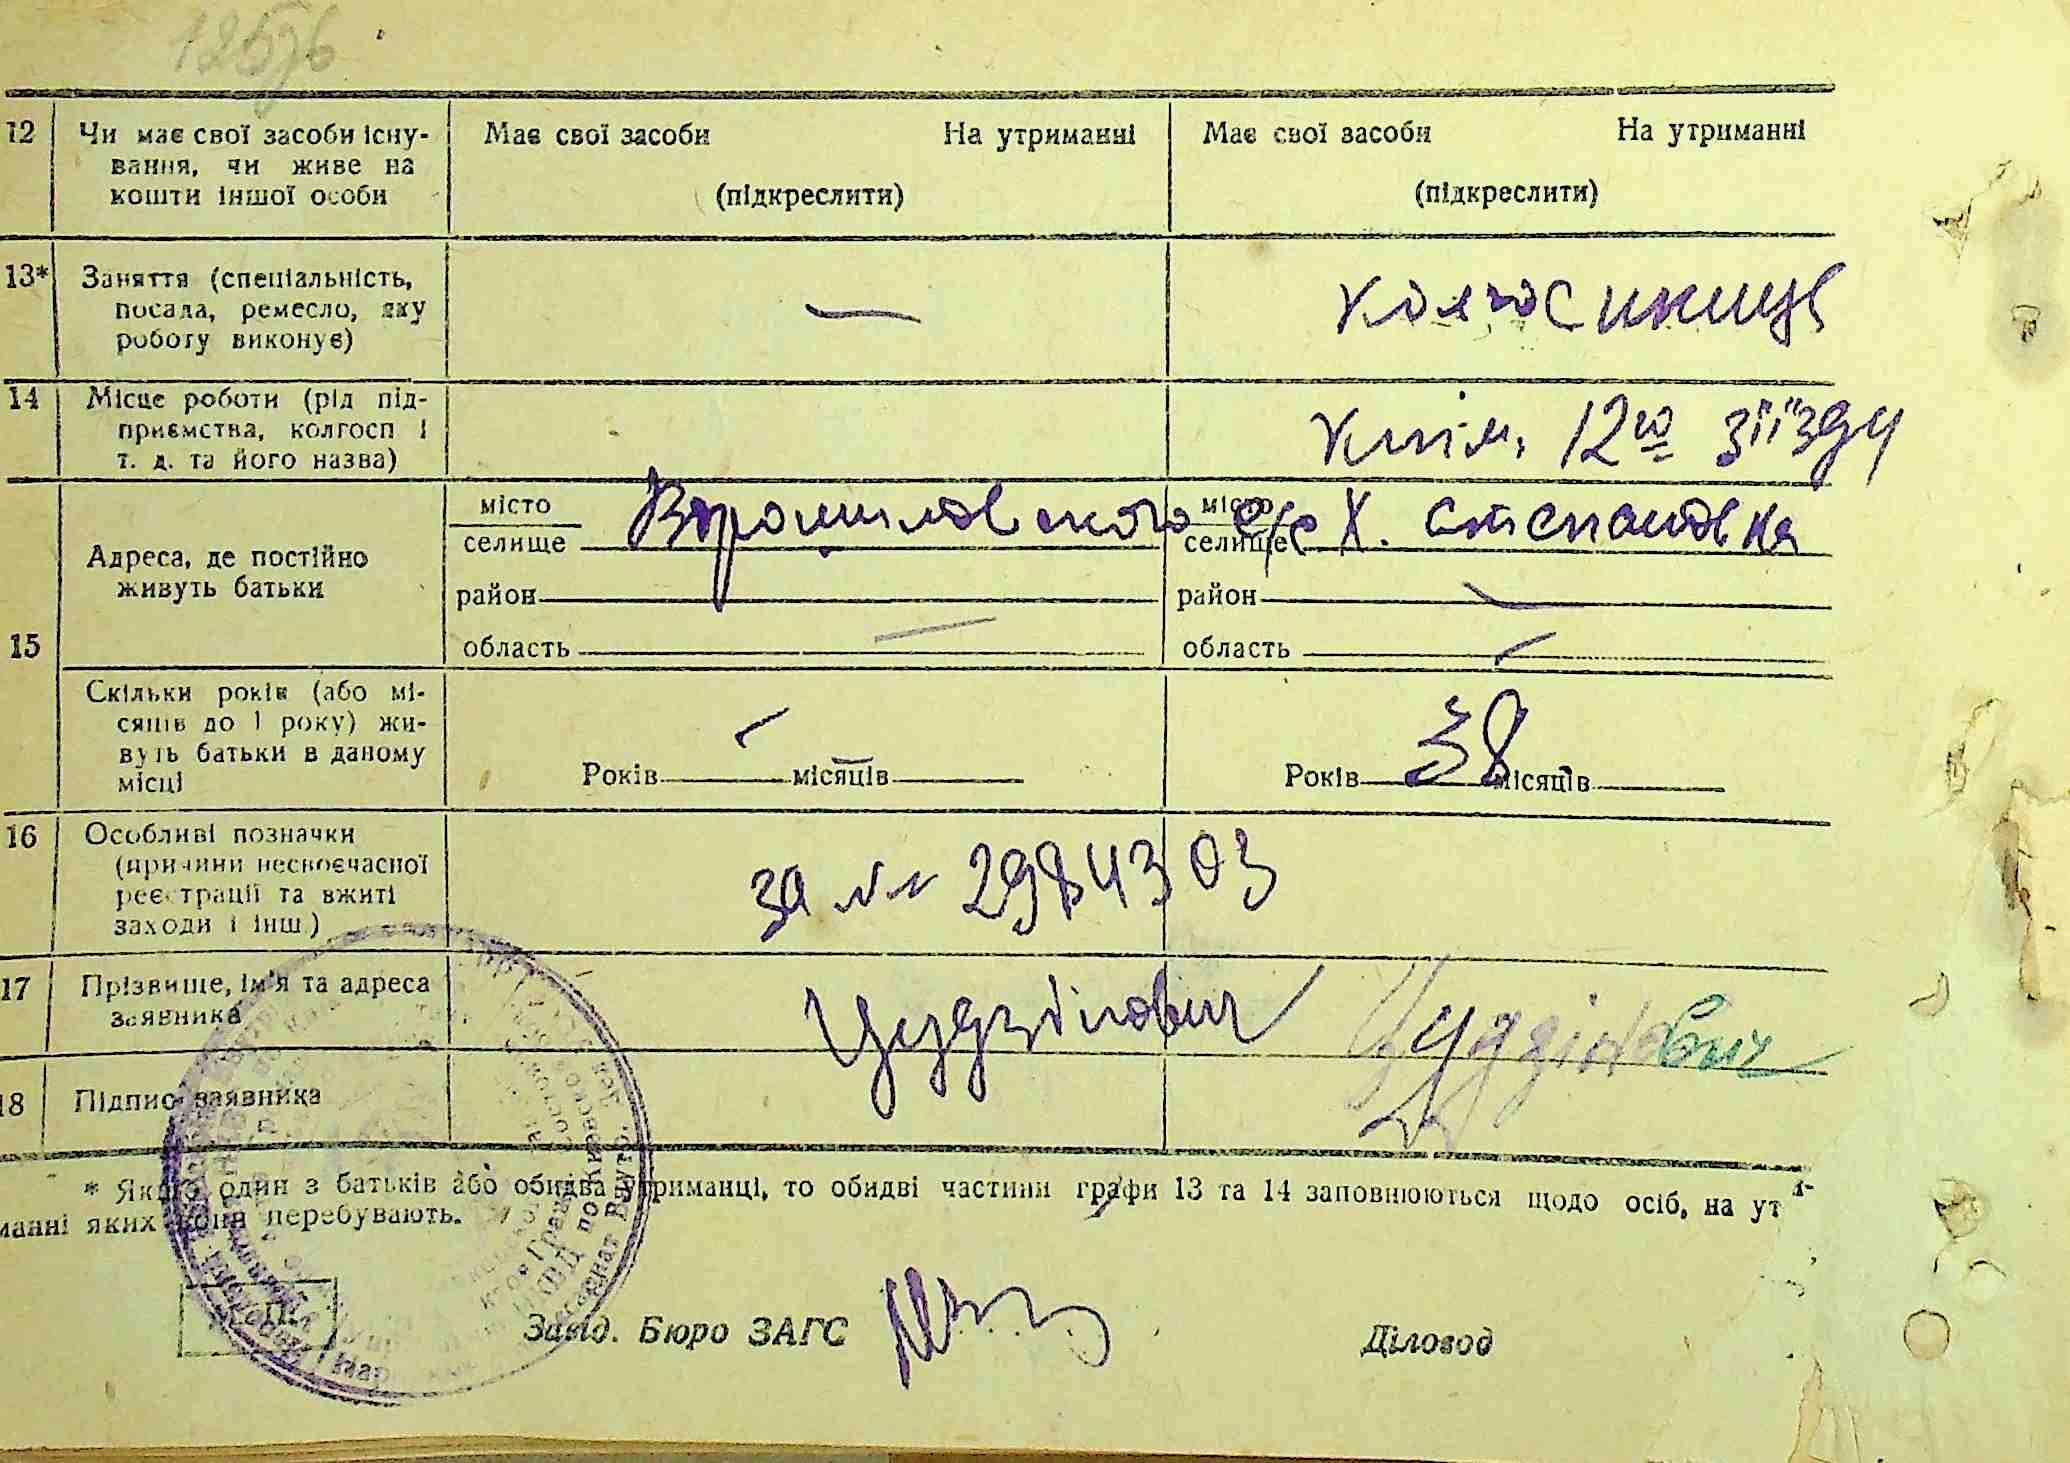 12
Чи має свої засоби існу-
вання, чи живе на
кошти іншої особи
Має свої засоби На утриманні
(підкреслити)
Має свої засоби На утриманні
(підкреслити)
13*
Заняття (спеціальність,
посада, ремесло, яку
роботу виконує)
—
14
Місце роботи (рід під-
приємства, колгосп і
т. д. та його назва)
12го зїізду
15
Адреса, де постійно
живуть батьки
місто
селище
Ворошиловського с/р Х. степановка
район
область —
місто
селище
район —
область —
Скільки років (або мі-
сяців до 1 року) жи-
вуть батьки в даному
місці
Років — місяців —
Років 38 місяців
16
Особливі позначки
(причини несвоєчасної
реєстрації та вжиті
заходи і інш.)
за № 2984303
17
Прізвище, ім'я та адреса
заявника
18
Підпис заявника
* Якщо один з батьків або обидва утриманці, то обидві частини графи 13 та 14 заповнюються щодо осіб, на ут
манні яких вони перебувають.
Завід. Бюро ЗАГС
Діловод